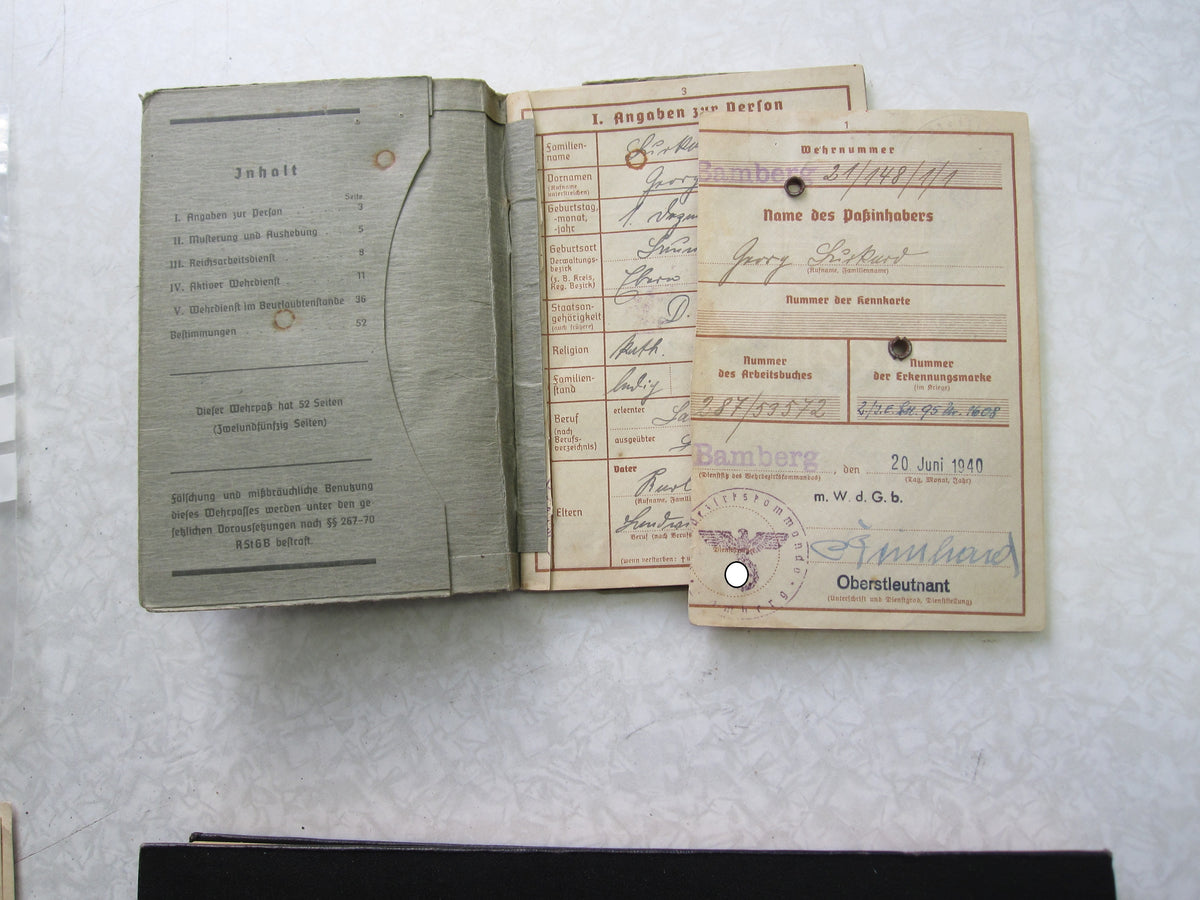 Inhalt
Seite
I. Angaben zur Person 3
II. Musterung und Aushebung . 5
III. Reichsarbeitsdienst . 8
IV. Aktiver Wehrdienst . 11
V. Wehrdienst im Beurlaubtenstande 36
Bestimmungen 52
Dieser Wehrpaß hat 52 Seiten
(Zweiundfünfzig Seiten)
Fälschung und mißbräuchliche Benutzung
dieses Wehrpasses werden unter den ge-
setzlichen Voraussetzungen nach §§ 267-70
RStGB bestraft.
3
I. Angaben zur Person
Familien-
name
Vornamen
(Rufname
unterstreichen)
Georg
Geburtstag,
-monat,
-jahr
1. Dezem
Geburtsort
Verwaltungs-
bezirk
(z. B. Kreis,
Reg. Bezirk)
Ebern
Staatsan-
gehörigkeit
(auch frühere)
D.
Religion
kath.
Familien-
stand
ledig
Beruf
(nach
Berufs-
verzeichnis)
erlernter
ausgeübter
Eltern
Vater
Karl
(Rufname, Famili
Beruf (nach Berufs
(wenn verstorben: †
1
Wehrnummer
Bamberg 21/148/1/1
Name des Paßinhabers
Georg Burkard
(Rufname, Familienname)
Nummer der Kennkarte
Nummer
des Arbeitsbuches
287/53572
Nummer
der Erkennungsmarke
(im Kriege)
95 Nr. 1608
Bamberg, den 20. Juni 1940
(Dienstsitz des Wehrbezirkskommandos)
(Tag, Monat, Jahr)
m. W. d. G. b.
Oberstleutnant
(Unterschrift und Dienstgrad, Dienststellung)